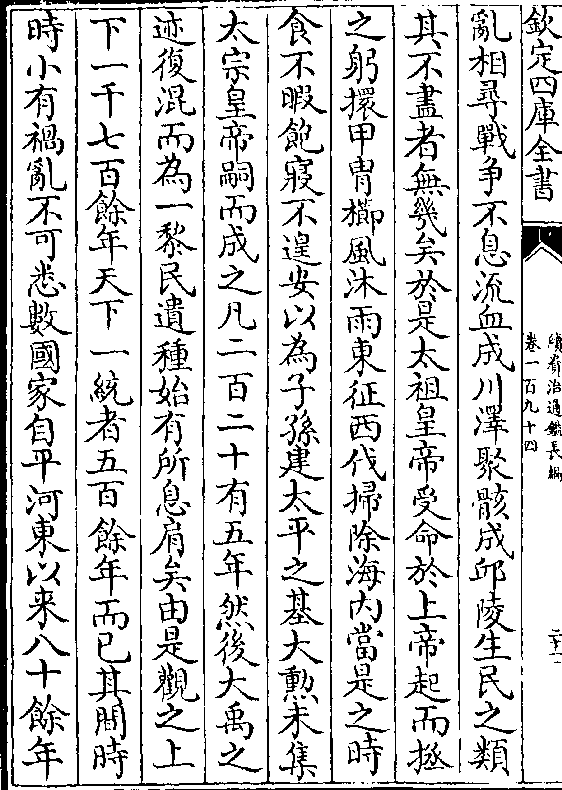 欽定四庫全書
續資治通鑑長編
卷一百九十四
二十一
亂相尋戰争不息流血成川澤聚骸成邱陵生民之類
其不盡者無幾矣於是太祖皇帝受命於上帝起而拯
之躬擐甲胄櫛風沐雨東征西伐掃除海内當是之時
食不暇飽寢不遑安以為子孫建太平之基大勲未集
太宗皇帝嗣而成之凡二百二十有五年然後大禹之
迹復混而為一黎民遺種始有所息肩矣由是觀之上
下一千七百餘年天下一統者五百餘年而已其間時
時小有禍亂不可悉數國家自平河東以来八十餘年